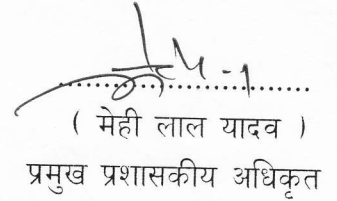 ( मेही लाल यादव )
प्रमुख प्रशासकीय अधिकृत